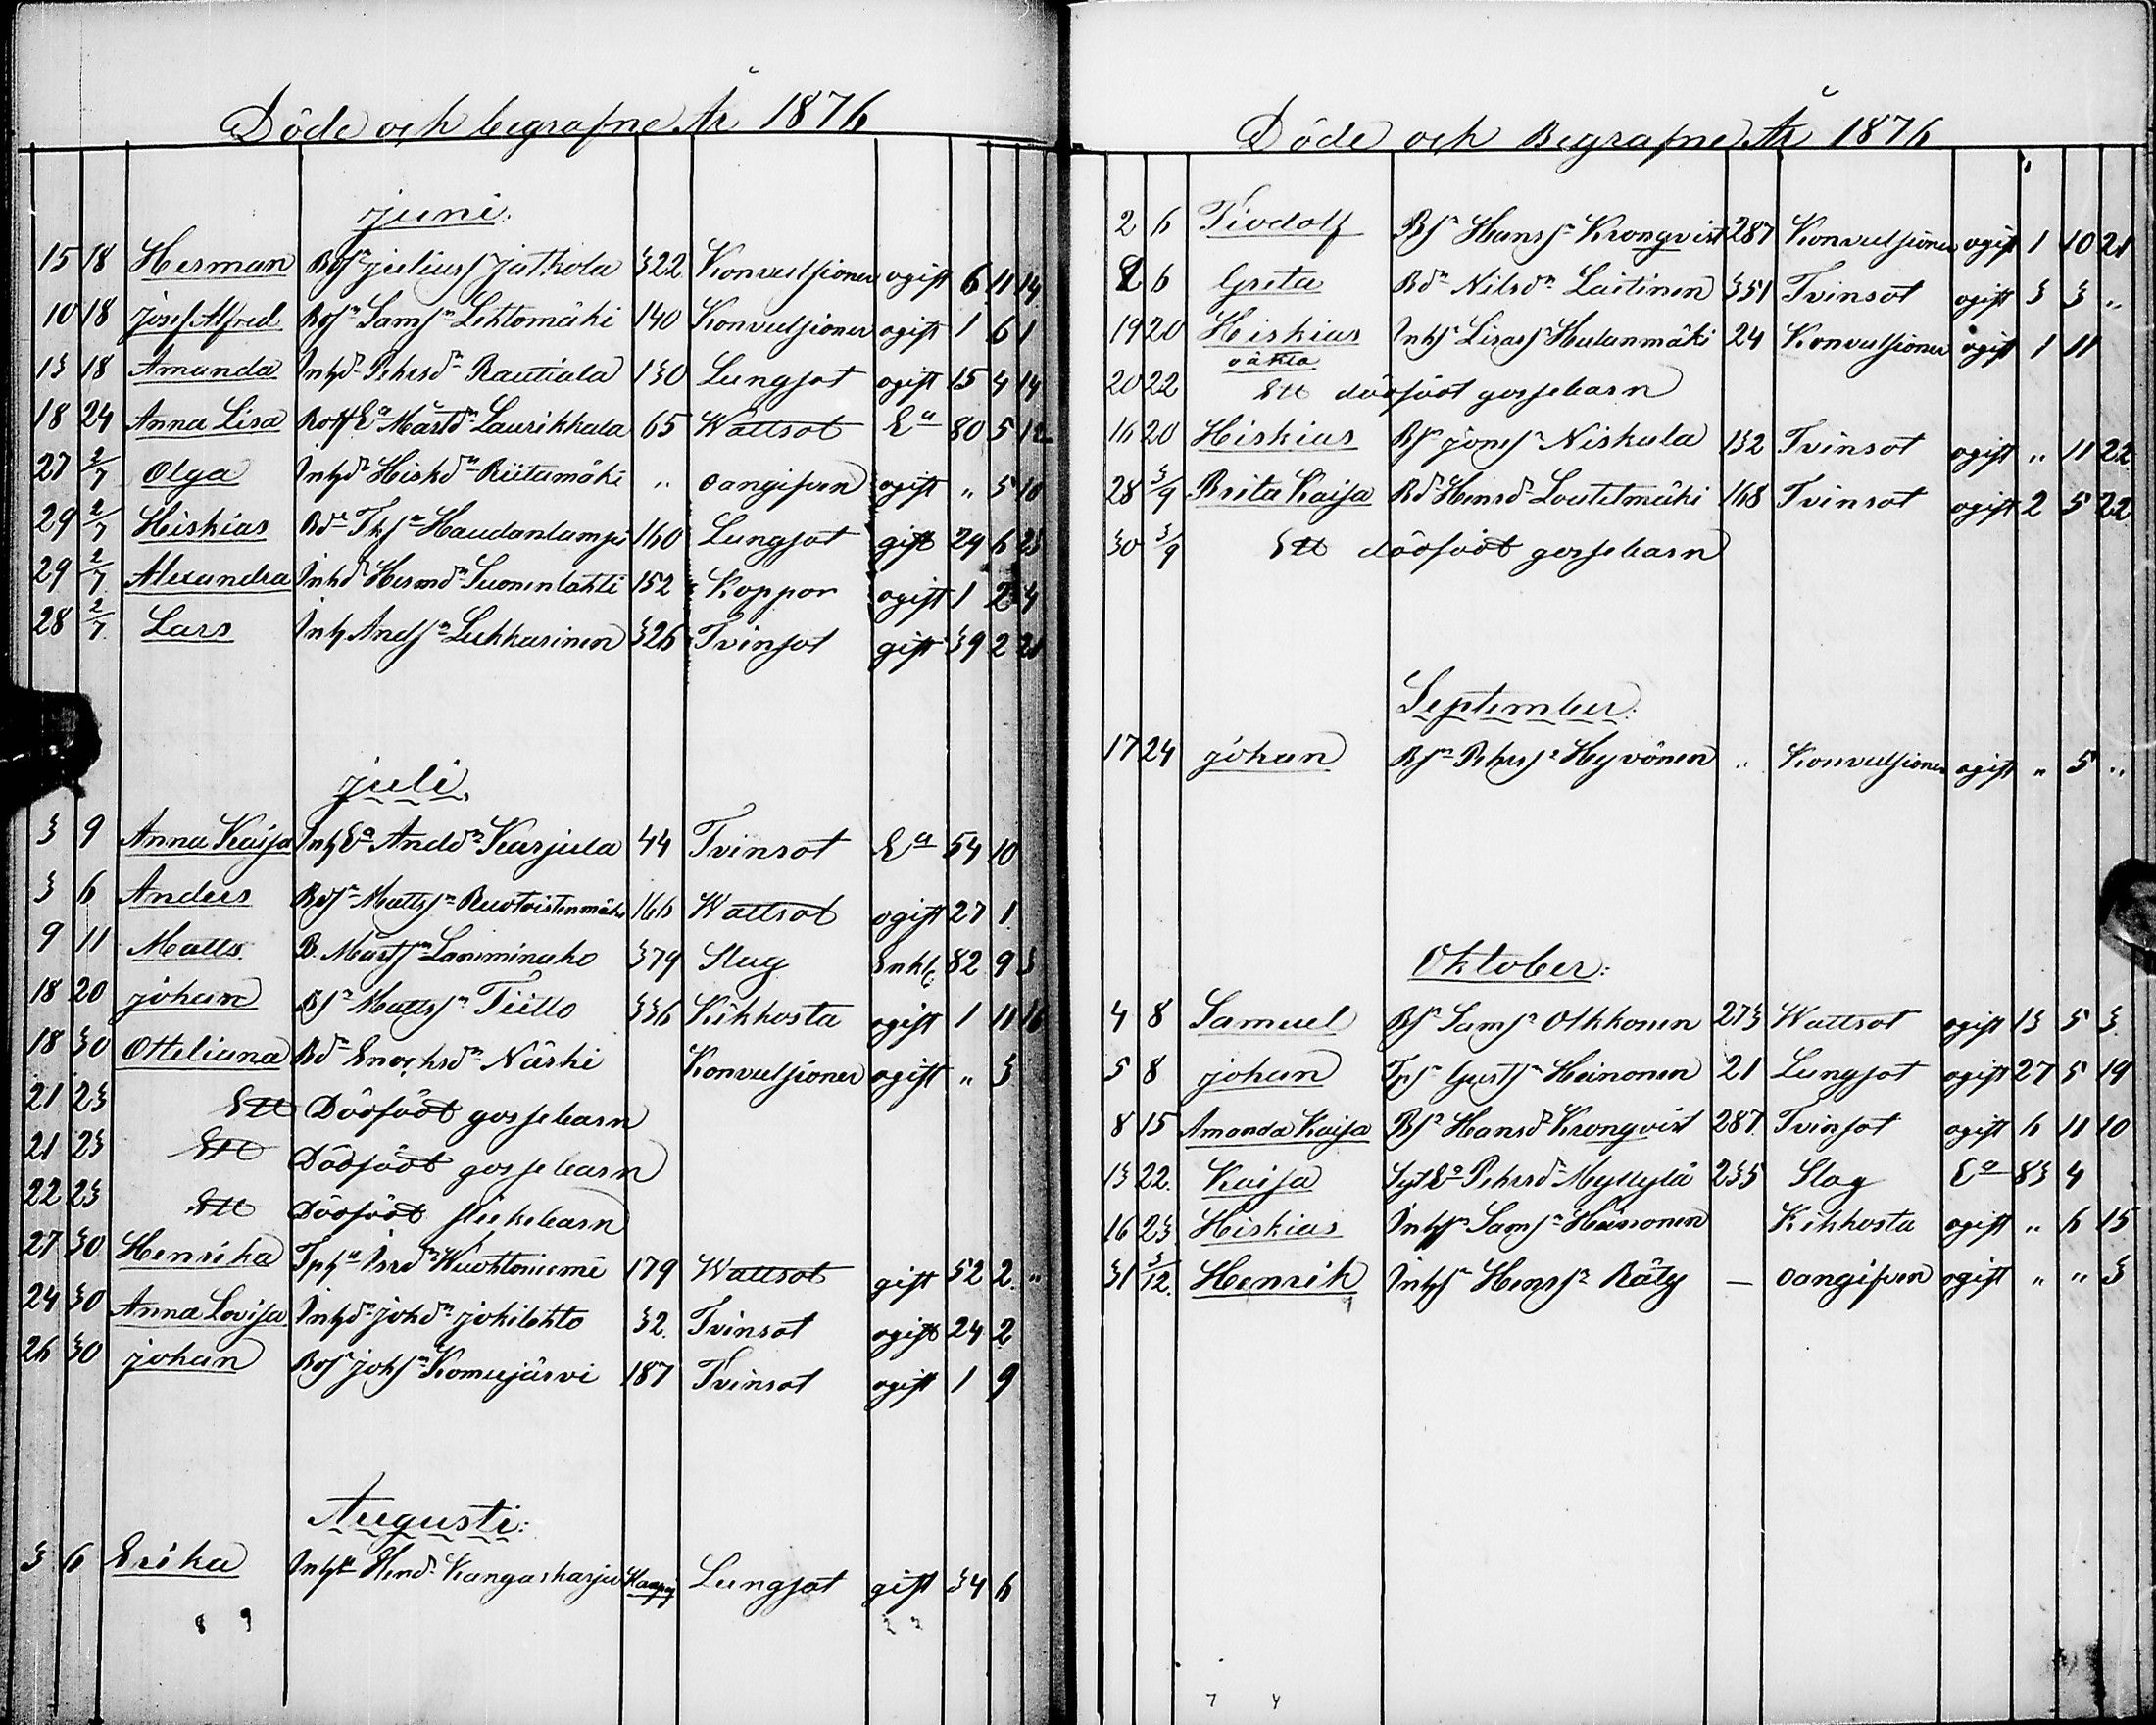 Döde och begrafne År 1876
juni:
15 18 Herman Bdsn Juliuss Jatkola 322 Konvultsioner ogift 6 11 14
10 18 Josef Alfred Bdsn Samsn Lehtomäki 140 Konvultsioner ogift 1 6 1
13 18 Amanda Inhd Pehrsdr Rautiala 130 Lungsot ogift 15 4 14
18 24 Anna Lisa Ea Mårtdr Laurikkala 65 Wattsot Ea 80 5 12
27 2/7 Olga Inhdr Hiskdr Riitamäki " oangifven ogift " 5 10
29 2/7 Hiskias Haudanlampi 160 Lungsot gift 29 6 23
29 2/7 Alexandra Inhdr Hermdr Suonenlahti 152 Koppor ogift 1 2 4
28 2/7 Lars Inh Andsn Lukkarinen 326 Tvinsot gift 39 2 21
juli,
3 9 Anna Kaisa Inh Ea Anddr Karjula 44 Tvinsot Ea 54 10
3 6 Anders Bdsn Mattssn 166 Wattsot ogift 27 1
9 11 Matts B. Mårtsn Lamminaho 379 Slag Enkl 82 9 3
18 20 johan Bsn Mattssn Tiitto 336 Kikhosta ogift 1 11 16
18 30 Otteliana Bdr Enochsdr Närhi Konvultsioner ogift " 3
21 23 Ett Dödfödt gossebarn
21 23 Ett Dödfödt gossebarn
22 23 Ett Dödfödt flickebarn
27 30 Henrika Wuohtoniemi 179 Wattsot gift 52 2 "
24 30 Anna Lovisa Inhdr johdr jokilehto 32. Tvinsot ogift 24 2
26 30 johan Bdsn johsn Komujärvi 187 Tvinsot ogift 1 9
Augusti:
3 6 Erika Hind Kangasharju Lungsot gift 34 6
Döde och Begrafne År 1876
2 6 Tiodolf Bsn Hanssn Kronqvist 287 Konvultsioner ogift 1 10 21
2 6 Greta Bdr Nilsdr Laitinen 351 Tvinsot ogift 3 3 "
19 20 Hiskias oäkta Inhs Lisass Hulanmäki 24 Konvultsioner ogift 1 11
20 22 Ett dödfödt gossebarn
16 20 Hiskias Bsn jonssn Niskala 132 Tvinsot ogift " 11 22
28 3/9 Brita Kaisa Bdr Henrdr Loutetmäki 168 Tvinsot ogift 2 5 22
30 3/9 Ett dödfödt gossebarn
September:
17 24 johan Bsn Pehrsn Hyvönen " Konvultsioner ogift " 5 "
Oktober:
4 8 Samuel Bsn Samsn Olkkonen 273 Wattsot ogift 13 5 3
5 8 johan Gustsn Heinonen 21 Lungsot ogift 27 5 19
8 15 Amanda Kaisa Hansdr Kronqvist 287 Tvinsot ogift 6 11 10
13 22. Kaisa Sytea Pehrsdr Myllylä 235 Slag Ea 83 4
16 23 Hiskias Inhsn Samsn Heinonen Kikhosta ogift " 6 15
31 3/12. Henrik Inhs Henrsn Räty — oangifven ogift " " 3